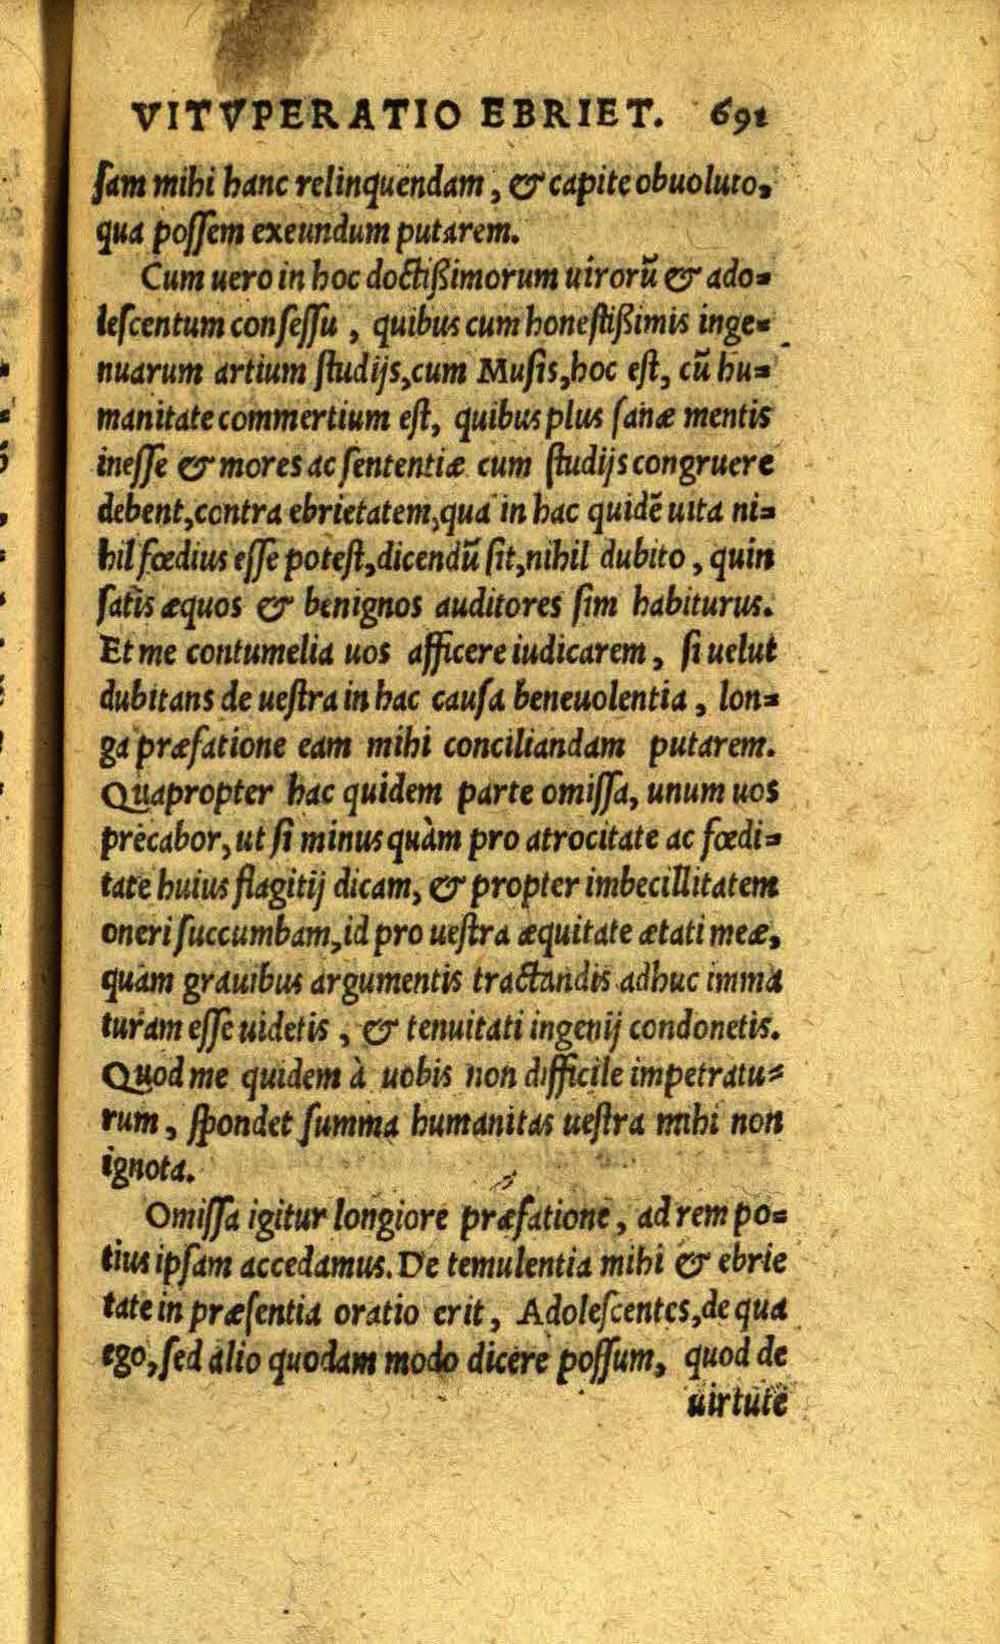 VITVPERATIO EBRIET. 691
ſam mihi hanc relinquendam, & capite obuoluto,
qua poſſem exeundum putarem.
Cum uero in hoc doctißimorum uirorū & ado=
leſcentum conſeſſu, quibus cum honeſtißimis inge=
nuarum artium ſtudijs, cum Muſis, hoc eſt, cū hu=
manitate commertium eſt, quibus plus ſanæ mentis
ineſſe & mores ac ſententiæ cum ſtudijs congruere
debent, contra ebrietatem, qua in hac quidē uita ni=
hil fœdius eſſe poteſt, dicendū ſit, nihil dubito, quin
ſatis æquos & benignos auditores ſim habiturus.
Et me contumelia uos afficere iudicarem, ſi uelut
dubitans de ueſtra in hac cauſa beneuolentia, lon=
ga præfatione eam mihi conciliandam putarem.
Quapropter hac quidem parte omiſſa, unum uos
precabor, ut ſi minus quàm pro atrocitate ac fœdi=
tate huius flagitij dicam, & propter imbecillitatem
oneri ſuccumbam, id pro ueſtra æquitate ætati meæ,
quam grauibus argumentis tractandis adhuc imma
turam eſſe uidetis, & tenuitati ingenij condonetis.
Quod me quidem à uobis non difficile impetratu=
rum, ſpondet ſumma humanitas ueſtra mihi non
ignota.
Omiſſa igitur longiore præfatione, ad rem po=
tius ipſam accedamus. De temulentia mihi & ebrie
tate in præſentia oratio erit, Adoleſcentes, de qua
ego, ſed alio quodam modo dicere poſſum, quod de
uirtute